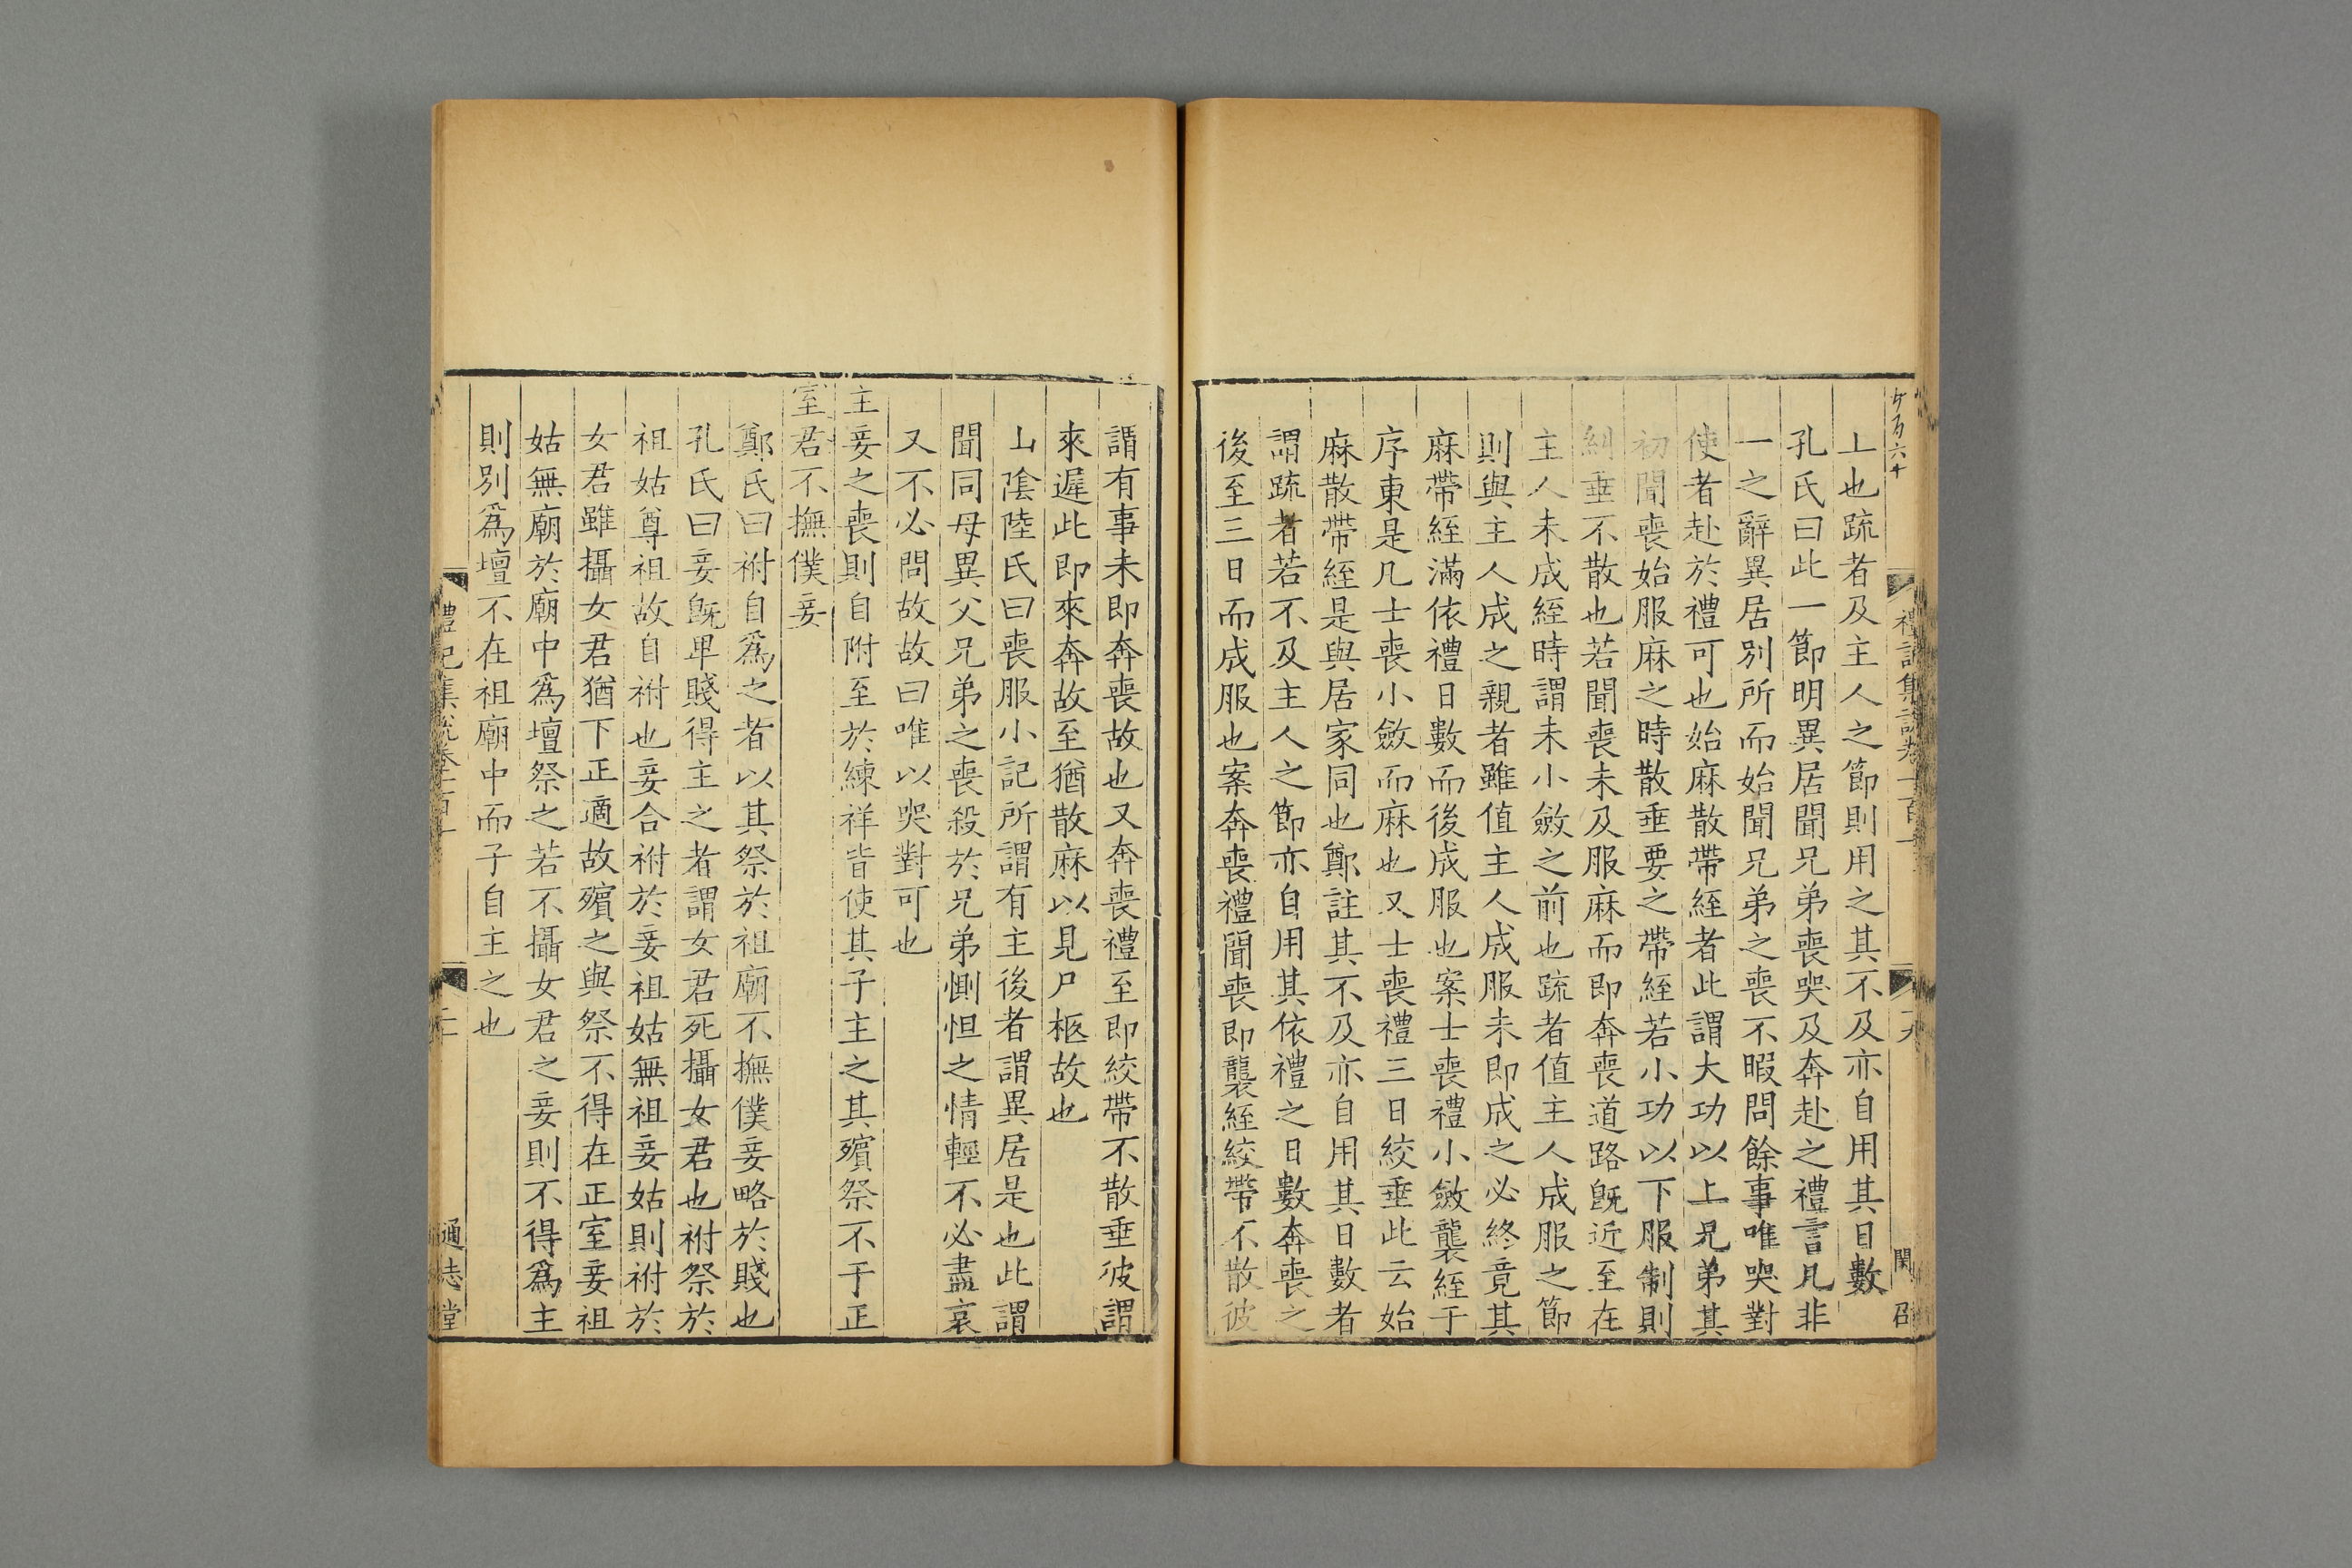 上也疏者及主人之節則用之其不及亦自用其日數
孔氏曰此一節明異居聞兄弟喪哭及奔赴之禮言凡非
一之辭異居別所而始聞兄弟之喪不暇問餘事唯哭對
使者赴於禮可也始麻散帶絰者此謂大功以上兄弟其
初聞喪始服麻之時散垂要之帶絰若小功以下服制則
糾垂不散也若聞喪未及服麻而即奔喪道路既近至在
主人未成絰時謂未小斂之前也疏者值主人成服之節
則與主人成之親者雖值主人成服未即成之必終竟其
麻帶絰滿依禮日數而後成服也案士喪禮小斂襲絰于
序東是凡士喪小斂而麻也又士喪禮三日絞垂此云始
麻散帶絰是與居家同也鄭註其不及亦自用其日數者
謂疏者若不及主人之節亦自用其依禮之日數奔喪之
後至三日而成服也案奔喪禮聞喪即襲絰絞帶不散彼
謂有事未即奔喪故也又奔喪禮至即絞帶不散垂彼謂
來遲此即來奔故至猶散麻以見尸柩故也
山陰陸氏曰喪服小記所謂有主後者謂異居是也此謂
聞同母異父兄弟之喪殺於兄弟惻怛之情輕不必盡哀
又不必問故故曰唯以哭對可也
主妾之喪則自附至於練祥皆使其子主之其殯祭不于正
室君不撫僕妾
鄭氏曰祔自爲之者以其祭於祖廟不撫僕妾略於賤也
孔氏曰妾既卑賤得主之者謂女君死攝女君也祔祭於
祖姑尊祖故自祔也妾合祔於妾祖姑無祖妾姑則祔於
女君雖攝女君猶下正適故殯之與祭不得在正室妾祖
姑無廟於廟中爲壇祭之若不攝女君之妾則不得爲主
則別爲壇不在祖廟中而子自主之也
通志堂